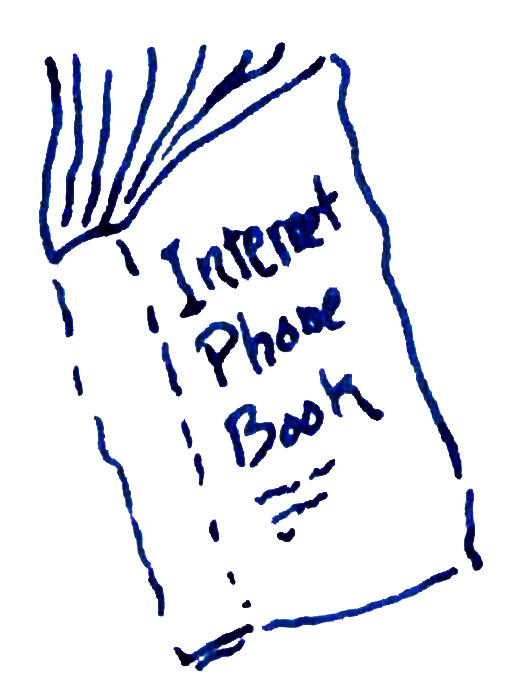 Internet
Phone
Book